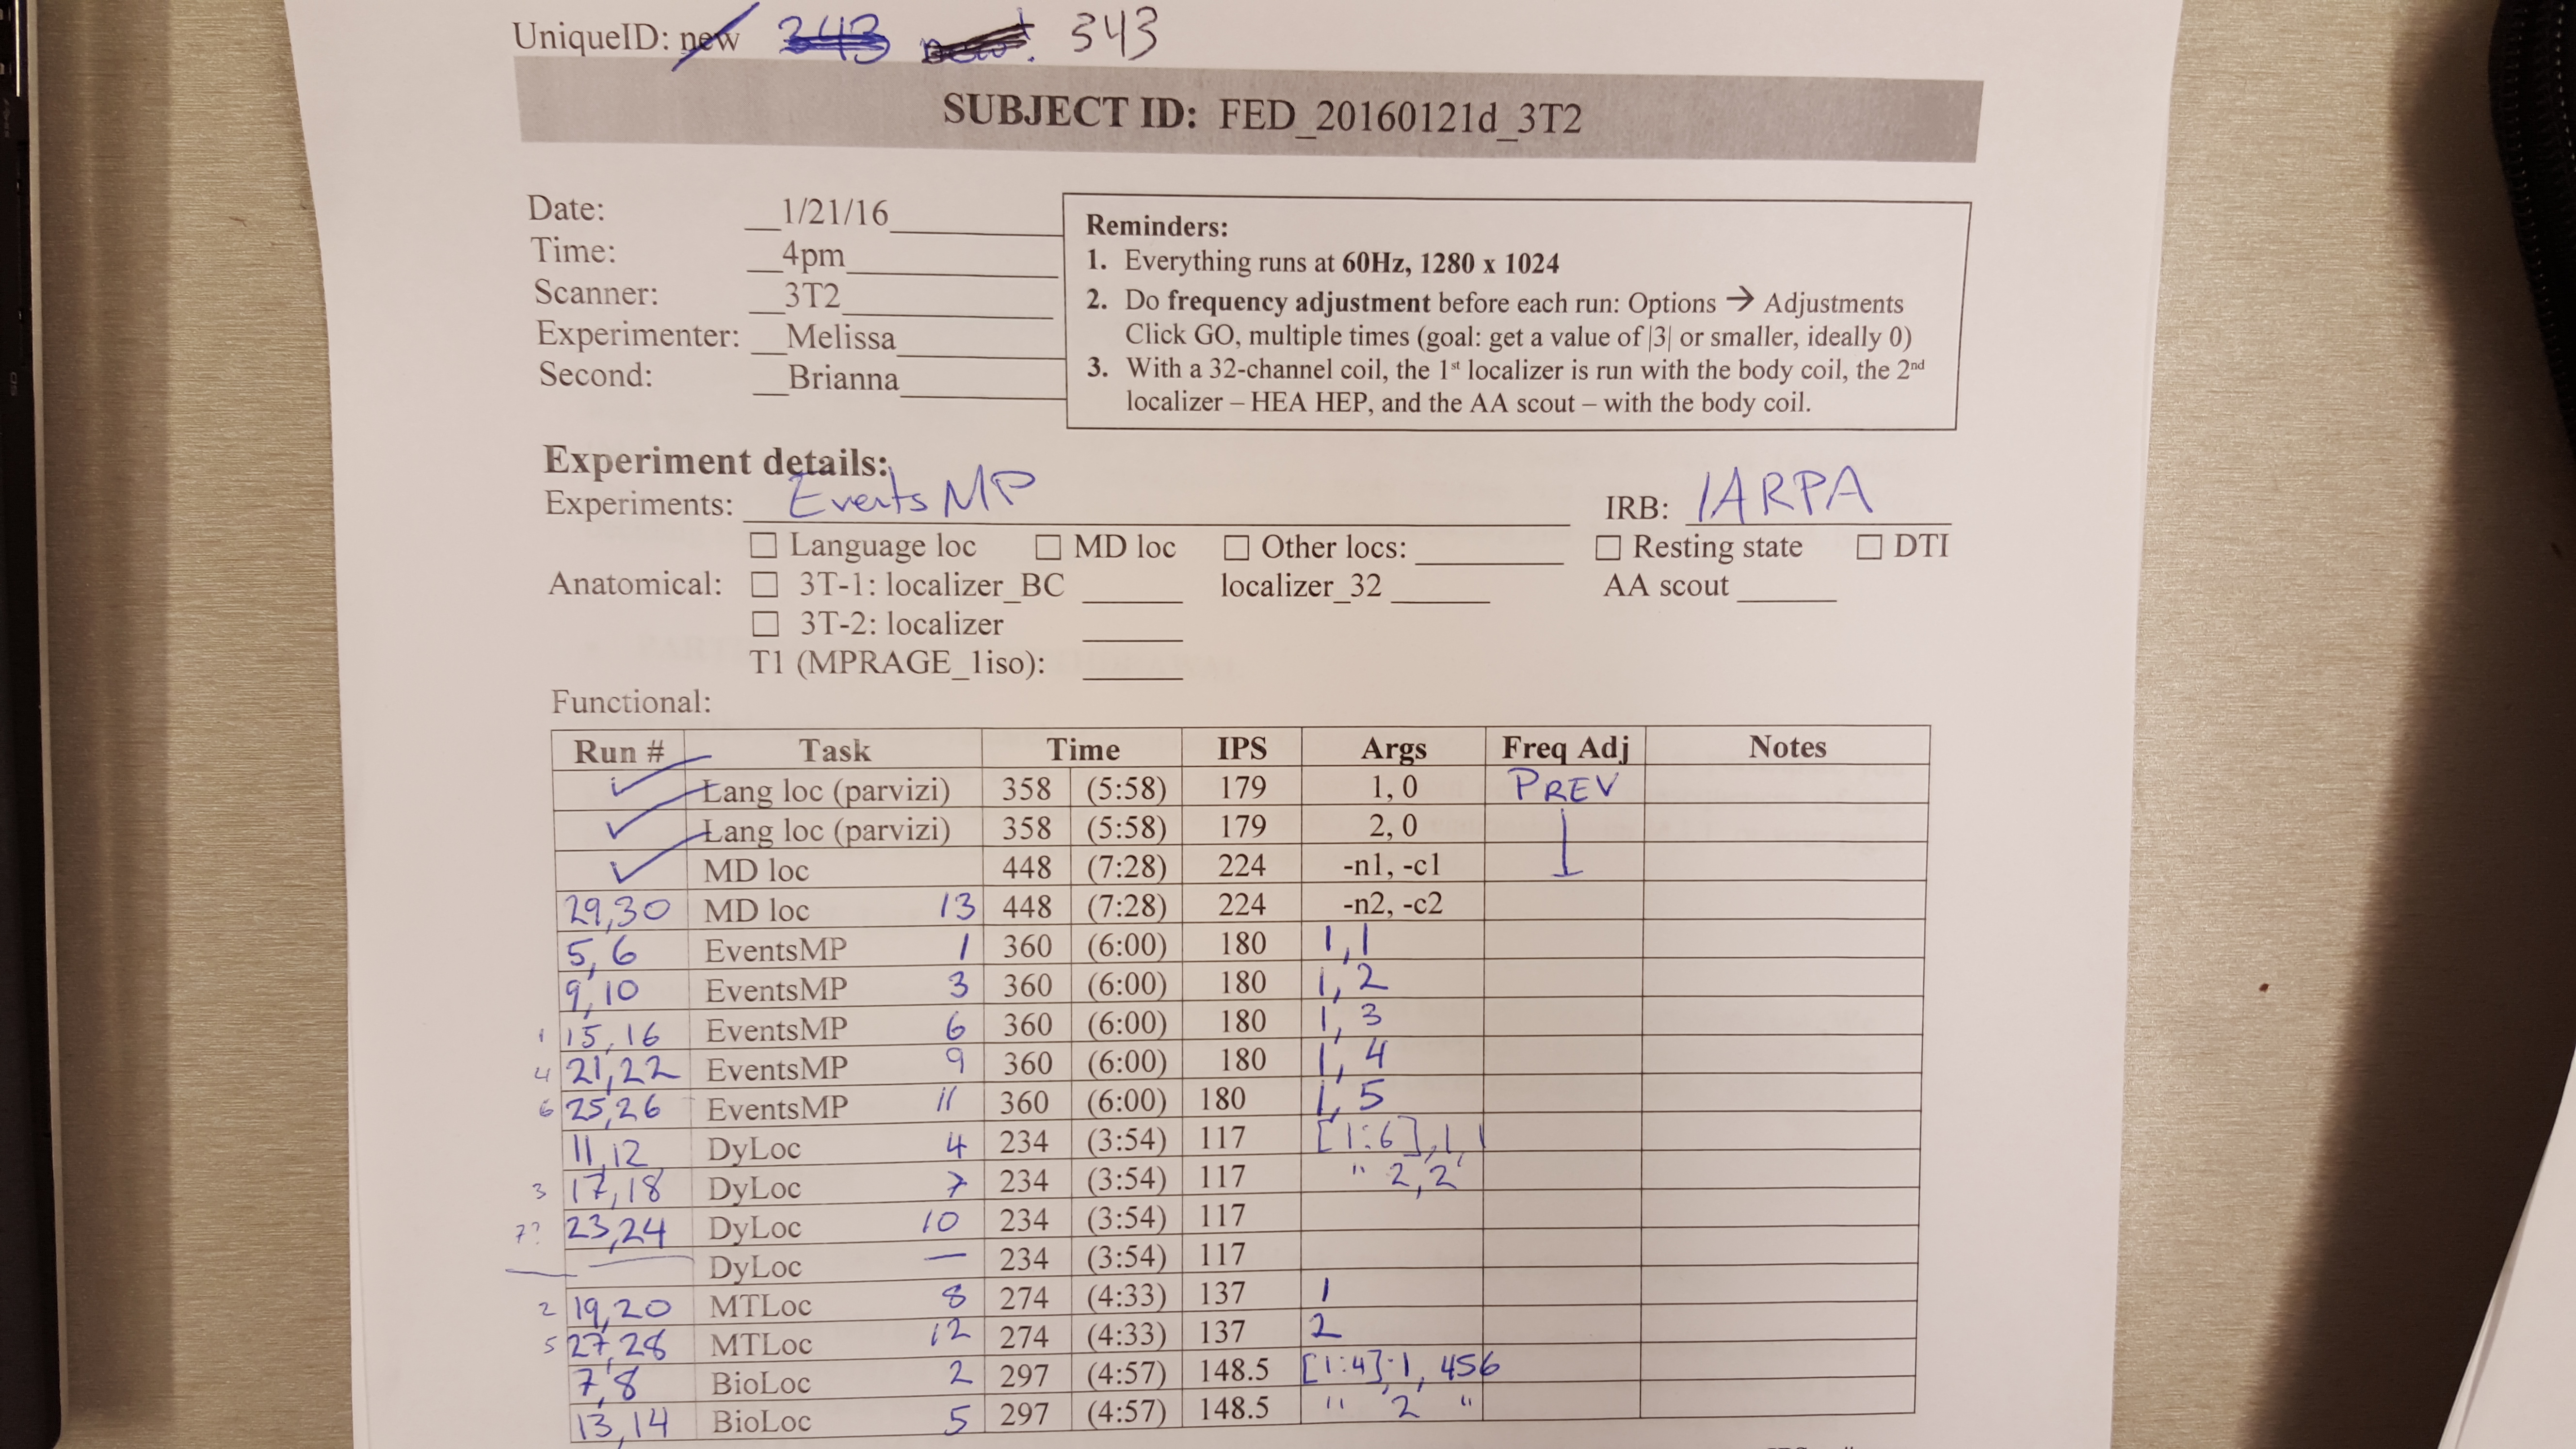 UniqueID: new 343 343
SUBJECT ID: FED_20160121d_3T2
Date: 1/21/16
Time: 4pm
Scanner: 3T2
Experimenter: Melissa
Second: Brianna
Reminders:
1. Everything runs at 60Hz, 1280 x 1024
2. Do frequency adjustment before each run: Options → Adjustments
Click GO, multiple times (goal: get a value of |3| or smaller, ideally 0)
3. With a 32-channel coil, the 1st localizer is run with the body coil, the 2nd
localizer – HEA HEP, and the AA scout – with the body coil.
Experiment details:
Experiments: Events MP IRB: IARPA
☐ Language loc ☐ MD loc ☐ Other locs: ☐ Resting state ☐ DTI
Anatomical: ☐ 3T-1: localizer_BC localizer_32 AA scout
☐ 3T-2: localizer
T1 (MPRAGE_1iso):
Functional:
Run # Task Time IPS Args Freq Adj Notes
✓ Lang loc (parvizi) 358 (5:58) 179 1, 0 PREV
✓ Lang loc (parvizi) 358 (5:58) 179 2, 0
✓ MD loc 448 (7:28) 224 -n1, -c1
29,30 MD loc 13 448 (7:28) 224 -n2, -c2
5, 6 EventsMP 1 360 (6:00) 180 1, 1
9, 10 EventsMP 3 360 (6:00) 180 1, 2
1 15, 16 EventsMP 6 360 (6:00) 180 1, 3
4 21,22 EventsMP 9 360 (6:00) 180 1, 4
6 25,26 EventsMP 11 360 (6:00) 180 1, 5
11,12 DyLoc 4 234 (3:54) 117 [1:6],1,1
3 17,18 DyLoc 7 234 (3:54) 117 " 2,2
7? 23,24 DyLoc 10 234 (3:54) 117
— DyLoc — 234 (3:54) 117
2 19,20 MTLoc 8 274 (4:33) 137 1
5 27,28 MTLoc 12 274 (4:33) 137 2
7,8 BioLoc 2 297 (4:57) 148.5 [1:4],1, 456
13,14 BioLoc 5 297 (4:57) 148.5 " 2 "